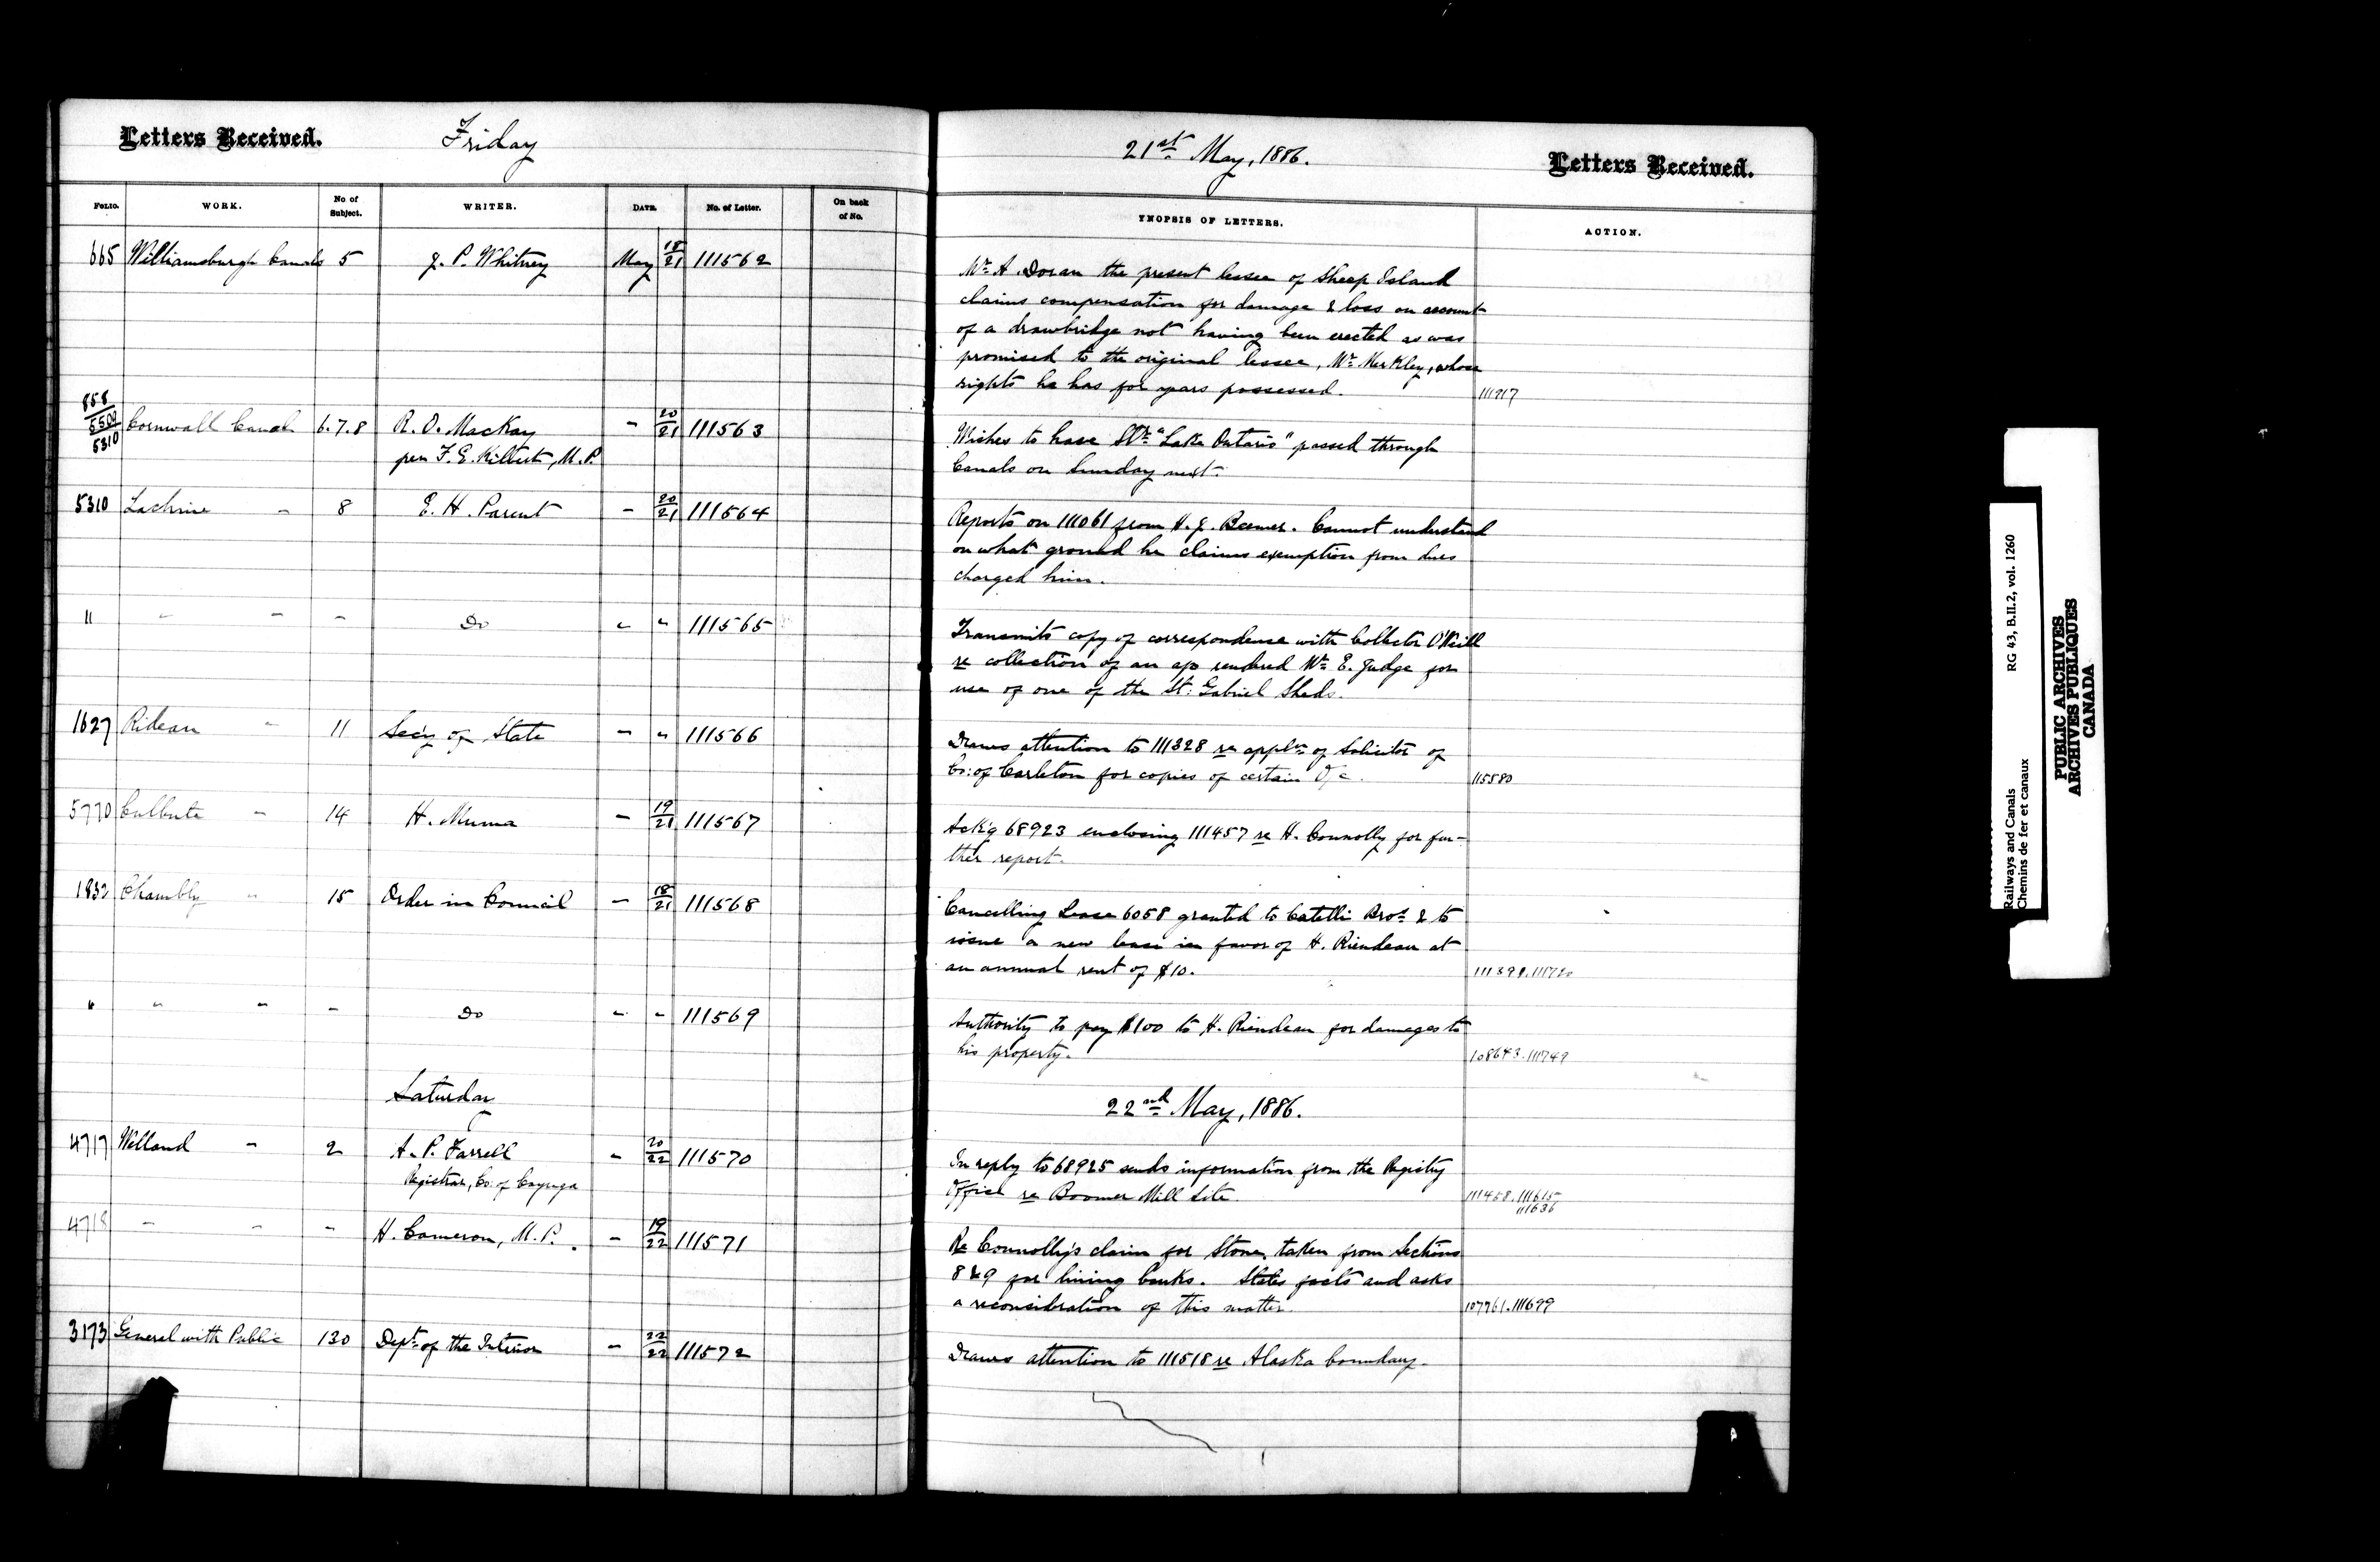 Letters Received. Friday
FOLIO. WORK. No of Subject. WRITER. DATE. No. of Letter. On back of No.
665 Williamsburgh Canals 5 J. P. Whitney May 18/21 111562
858/5500/5310 Cornwall Canal 6.7.8 R. O. MacKay - 20/21 111563
per F. E. Kilvert, M.P.
5310 Lachine - 8 E. H. Parent - 20/21 111564
" " - - Do " " 111565
1627 Rideau - 11 Sec'y of State - " 111566
5770 Culbute - 14 H. Muma - 19/21 111567
1832 Chambly " 15 Order in Council - 18/21 111568
" " " - Do " " 111569
Saturday
4717 Welland - 2 A. P. Farrell - 20/22 111570
Registrar, Co: of Cayuga
4718 - - - H. Cameron, M.P. - 19/22 111571
3173 General with Public 130 Dept. of the Interior - 22/22 111572
21st May, 1886. Letters Received.
YNOPSIS OF LETTERS. ACTION.
Mr. A. Doran the present lessee of Sheep Island
claims compensation for damage & loss on account
of a drawbridge not having been erected as was
promised to the original lessee, Mr. Merkley, whose
rights he has for years possessed. 111917
Wishes to have Str. "Lake Ontario" passed through
Canals on Sunday next.
Reports on 111061 from H. J. Beemer. Cannot understand
on what ground he claims exemption from dues
charged him.
Transmits copy of correspondence with Collector O'Neill
re collection of an a/c rendered Mr. E. Judge for
use of one of the St. Gabriel Sheds.
Draws attention to 111328 re appl'n of Solicitor of
Co: of Carleton for copies of certain O/c. 115580
Ack'g 68923 enclosing 111457 re H. Connolly for fur-
ther report.
Cancelling Lease 6058 granted to Catelli Bros. & to
issue a new lease in favor of H. Riendeau at
an annual rent of $10. 111399.111720
Authority to pay $100 to H. Riendeau for damages to
his property. 108643.111749
22nd May, 1886.
In reply to 68925 sends information from the Registry
Office re Boomer Mill Site. 111458.111615
111636
Re Connolly's claim for Stone taken from Sections
8 & 9 for lining banks. States facts and asks
a reconsideration of this matter. 107761.111699
Draws attention to 111518 re Alaska boundary.
Railways and Canals RG 43, B.II.2, vol. 1260
Chemins de fer et canaux
PUBLIC ARCHIVES
ARCHIVES PUBLIQUES
CANADA